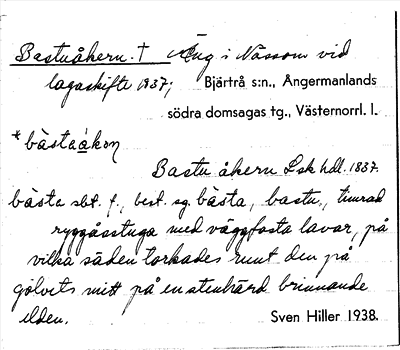 Bastuåkern. † Äng i Nässom vid
lagaskifte 1837; Bjärtrå s:n., Ångermanlands
södra domsagas tg., Västernorrl. l.
*bàstaákɒn
Bastu åkern Lsk hdl. 1837.
bàsta sbt. f., best. sg. bàsta, bastu, timrad
ryggåsstuga med väggfasta lavar, på
vilka säden torkades runt den på
golvets mitt på en stenhärd brinnande
elden. Sven Hiller 1938.